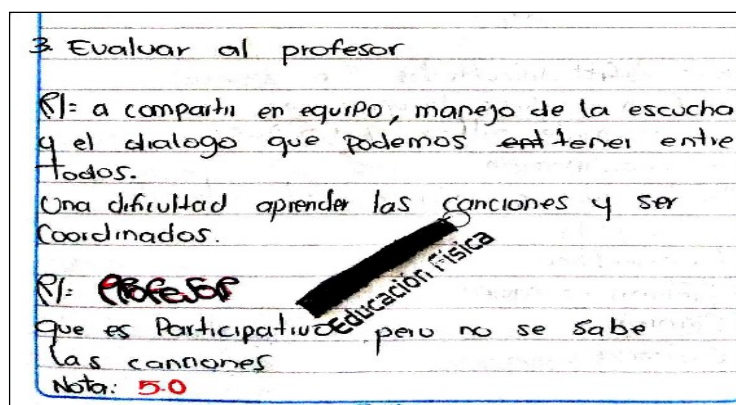 3. Evaluar al profesor
R/= a compartir en equipo, manejo de la escucha
y el dialogo que podemos ent tener entre
todos.
Una dificultad aprender las canciones y ser
Coordinados.
R/= PROFESOR
que es Participativo pero no se sabe
las canciones
Nota: 5.0
Educación Física